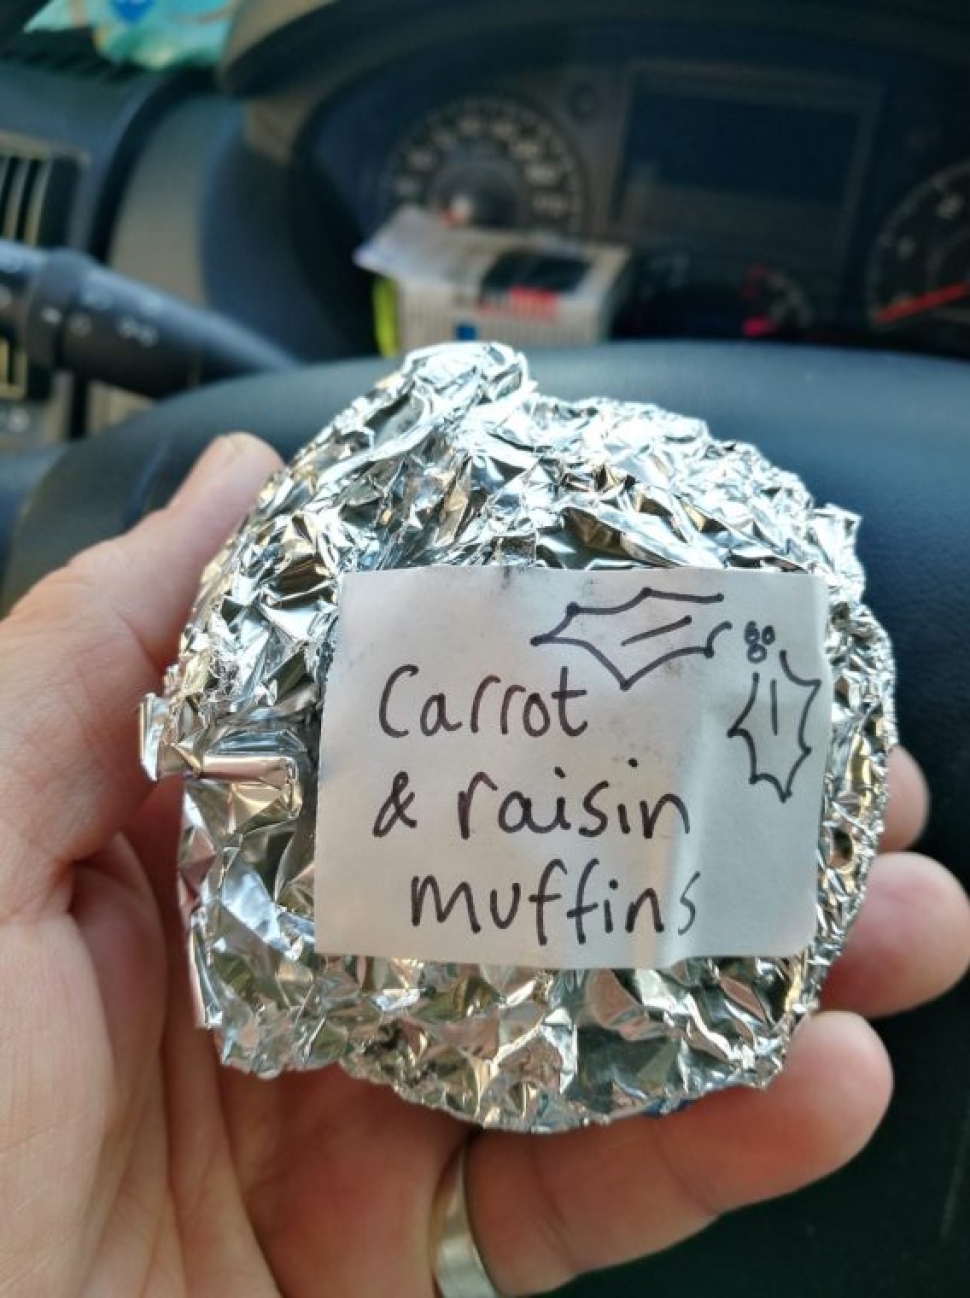 Carrot
& raisin
muffins